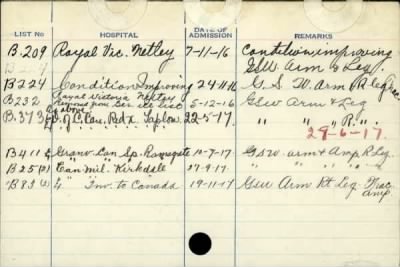 LIST NO HOSPITAL DATE OF ADMISSION REMARKS
B.209 Royal Vic. Netley 7-11-16 Condition improving
GSW Arm & Leg
B.224 Condition Improving 24-11-16 G.S.W. Arm R Leg
B.232 Royal Victoria Netley 5-12-16 GSW Arm & Leg
As above
B.373 D. of C. Can. Rdx Taplow 22-5-17 " " " R "
29-6-17.
B411 Granv. Can Sp. Ramsgate 10-7-17 GSW arm & Amp R Leg.
B25 (2) Can. Mil. Kirkdale 27-9-17. " " " " "
B83 (2) " Inv. to Canada 19-11-17 GSW Arm Rt Leg Frac
amp